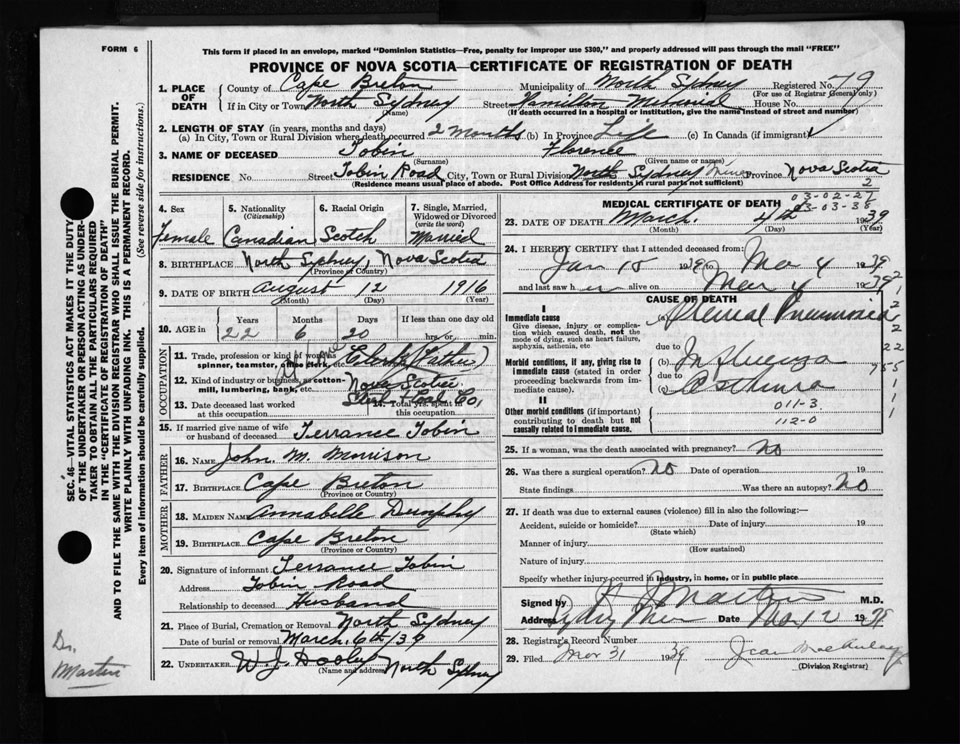 FORM 6
This form if placed in an envelope, marked "Dominion Statistics—Free, penalty for improper use $300," and properly addressed will pass through the mail "FREE"
PROVINCE OF NOVA SCOTIA—CERTIFICATE OF REGISTRATION OF DEATH
1. PLACE OF DEATH
County of Cape Breton Municipality of North Sydney Registered No. 79
(For use of Registrar General only)
If in City or Town North Sydney Street Hamilton Memorial House No.
(Name) (If death occurred in a hospital or institution, give the name instead of street and number)
2. LENGTH OF STAY (in years, months and days)
(a) In City, Town or Rural Division where death occurred 2 months (b) In Province Life (c) In Canada (if immigrant)
3. NAME OF DECEASED Tobin Florence
(Surname) (Given name or names)
RESIDENCE No. Street Tobin Road City, Town or Rural Division North Sydney Mines Province Nova Scotia
(Residence means usual place of abode. Post Office Address for residents in rural parts not sufficient)
4. Sex Female
5. Nationality (Citizenship) Canadian
6. Racial Origin Scotch
7. Single, Married, Widowed or Divorced (write the word) Married
8. BIRTHPLACE North Sydney, Nova Scotia
(Province or Country)
9. DATE OF BIRTH August 12 1916
(Month) (Day) (Year)
10. AGE in Years 22 Months 6 Days 20 If less than one day
hrs. or min.
OCCUPATION
11. Trade, profession or kind of work as spinner, teamster, office clerk, etc. Clerk (Father)
12. Kind of industry or business, as cotton-mill, lumbering, bank, etc. Nova Scotia Steel & Coal Co.
13. Date deceased last worked at this occupation
14. Total yrs. spent in this occupation
15. If married give name of wife or husband of deceased Terrance Tobin
FATHER
16. NAME John. M. Morrison
17. BIRTHPLACE Cape Breton
(Province or Country)
MOTHER
18. MAIDEN NAME Annabelle Dunphy
19. BIRTHPLACE Cape Breton
(Province or Country)
20. Signature of informant Terrance Tobin
Address Tobin Road
Relationship to deceased Husband
21. Place of Burial, Cremation or Removal North Sydney
Date of burial or removal March. 6th 39
22. UNDERTAKER W.J. Dooley North Sydney
(Name and address)
MEDICAL CERTIFICATE OF DEATH
23. DATE OF DEATH March. 4th 1939
(Month) (Day) (Year)
24. I HEREBY CERTIFY that I attended deceased from
Jan 15 1939 to Mar 4 1939
and last saw her alive on Mar 4 1939
CAUSE OF DEATH
I
Immediate cause
Give disease, injury or complication which caused death, not the mode of dying, such as heart failure, asphyxia, asthenia, etc
(a) Pneumonia
due to
Morbid conditions, if any, giving rise to immediate cause (stated in order proceeding backwards from immediate cause).
(b) Influenza
due to
(c) Asthma
II
Other morbid conditions (if important) contributing to death but not causally related to immediate cause.
011-3
112-0
25. If a woman, was the death associated with pregnancy? No
26. Was there a surgical operation? No Date of operation 19
State findings Was there an autopsy? No
27. If death was due to external causes (violence) fill in also the following:—
Accident, suicide or homicide? Date of injury 19
(State which)
Manner of injury
(How sustained)
Nature of injury
Specify whether injury occurred in industry, in home, or in public place
Signed by Martin M.D.
Address Sydney Mines Date Mar 12 1939
28. Registrar's Record Number
29. Filed Mar 31 1939 Jean
(Division Registrar)
SEC. 46—VITAL STATISTICS ACT MAKES IT THE DUTY
OF THE UNDERTAKER OR PERSON ACTING AS UNDERTAKER TO OBTAIN ALL THE PARTICULARS REQUIRED
IN THE "CERTIFICATE OF REGISTRATION OF DEATH"
AND TO FILE THE SAME WITH THE DIVISION REGISTRAR WHO SHALL ISSUE THE BURIAL PERMIT.
WRITE PLAINLY WITH UNFADING INK. THIS IS A PERMANENT RECORD.
Every item of information should be carefully supplied. (See reverse side for instructions.)
Dr.
Martin